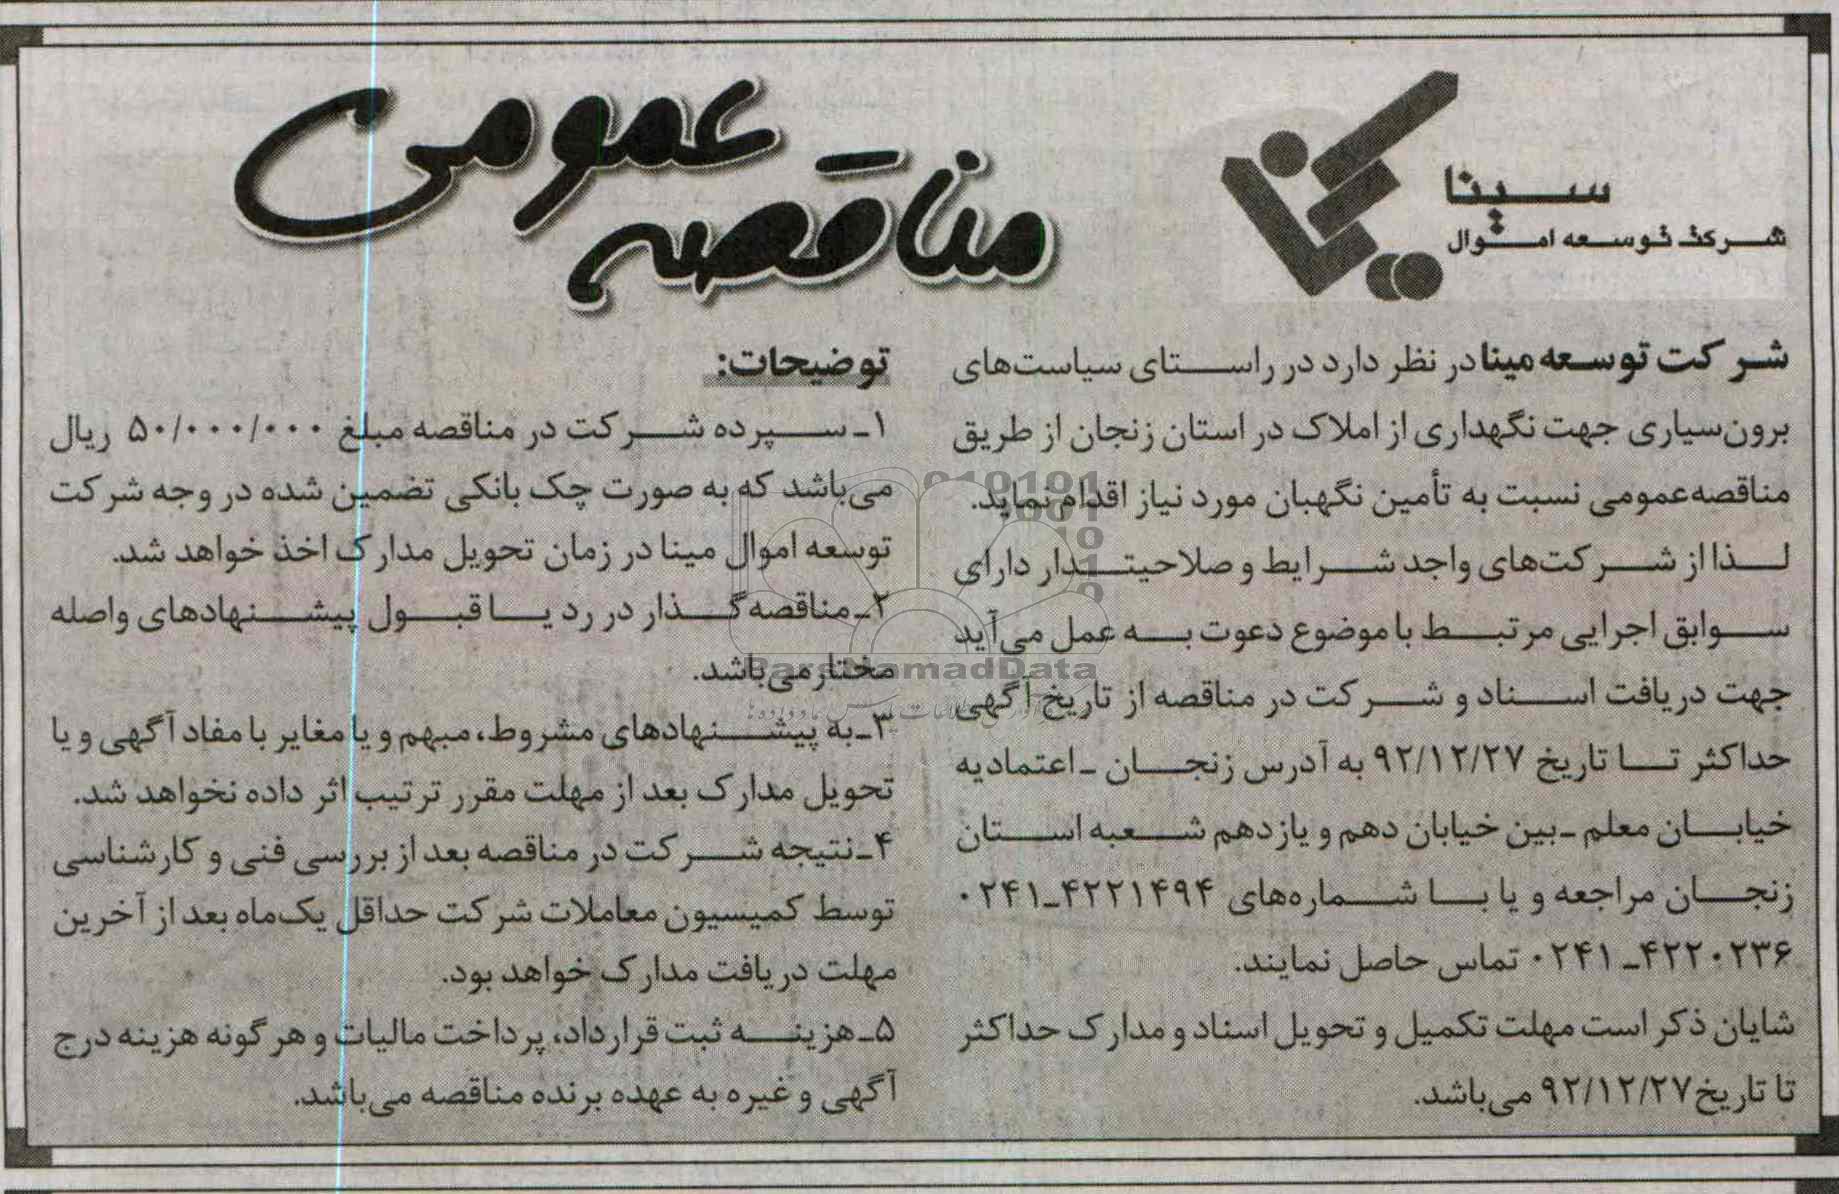 مناقصه عمومی
سینا
شرکت توسعه اموال
شرکت توسعه مینا در نظر دارد در راستای سیاست‌های
برون‌سپاری جهت نگهداری از املاک در استان زنجان از طریق
مناقصه‌عمومی نسبت به تأمین نگهبان مورد نیاز اقدام نماید.
لذا از شرکت‌های واجد شرایط و صلاحیتدار دارای
سوابق اجرایی مرتبط با موضوع دعوت به عمل می‌آید
جهت دریافت اسناد و شرکت در مناقصه از تاریخ آگهی
حداکثر تا تاریخ ۹۲/۱۲/۲۷ به آدرس زنجان ـ اعتمادیه
خیابان معلم ـ بین خیابان دهم و یازدهم شعبه استان
زنجان مراجعه و یا با شماره‌های ۴۲۲۱۴۹۴ـ۰۲۴۱
۴۲۲۰۲۳۶ـ۰۲۴۱ تماس حاصل نمایند.
شایان ذکر است مهلت تکمیل و تحویل اسناد و مدارک حداکثر
تا تاریخ ۹۲/۱۲/۲۷ می‌باشد.
توضیحات:
۱ـ سپرده شرکت در مناقصه مبلغ ۵۰/۰۰۰/۰۰۰ ریال
می‌باشد که به صورت چک بانکی تضمین شده در وجه شرکت
توسعه اموال مینا در زمان تحویل مدارک اخذ خواهد شد.
۲ـ مناقصه‌گذار در رد یا قبول پیشنهادهای واصله
مختار می‌باشد.
۳ـ به پیشنهادهای مشروط، مبهم و یا مغایر با مفاد آگهی و یا
تحویل مدارک بعد از مهلت مقرر ترتیب اثر داده نخواهد شد.
۴ـ نتیجه شرکت در مناقصه بعد از بررسی فنی و کارشناسی
توسط کمیسیون معاملات شرکت حداقل یک‌ماه بعد از آخرین
مهلت دریافت مدارک خواهد بود.
۵ـ هزینه ثبت قرارداد، پرداخت مالیات و هرگونه هزینه درج
آگهی و غیره به عهده برنده مناقصه می‌باشد.
ParsNamadData